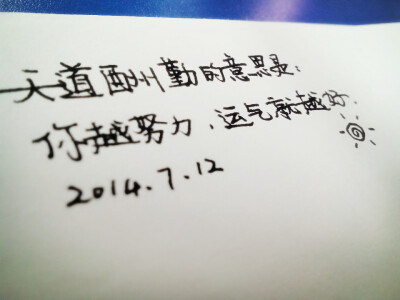 天道酬勤的意思是:
你越努力,运气就越好.
2014.7.12